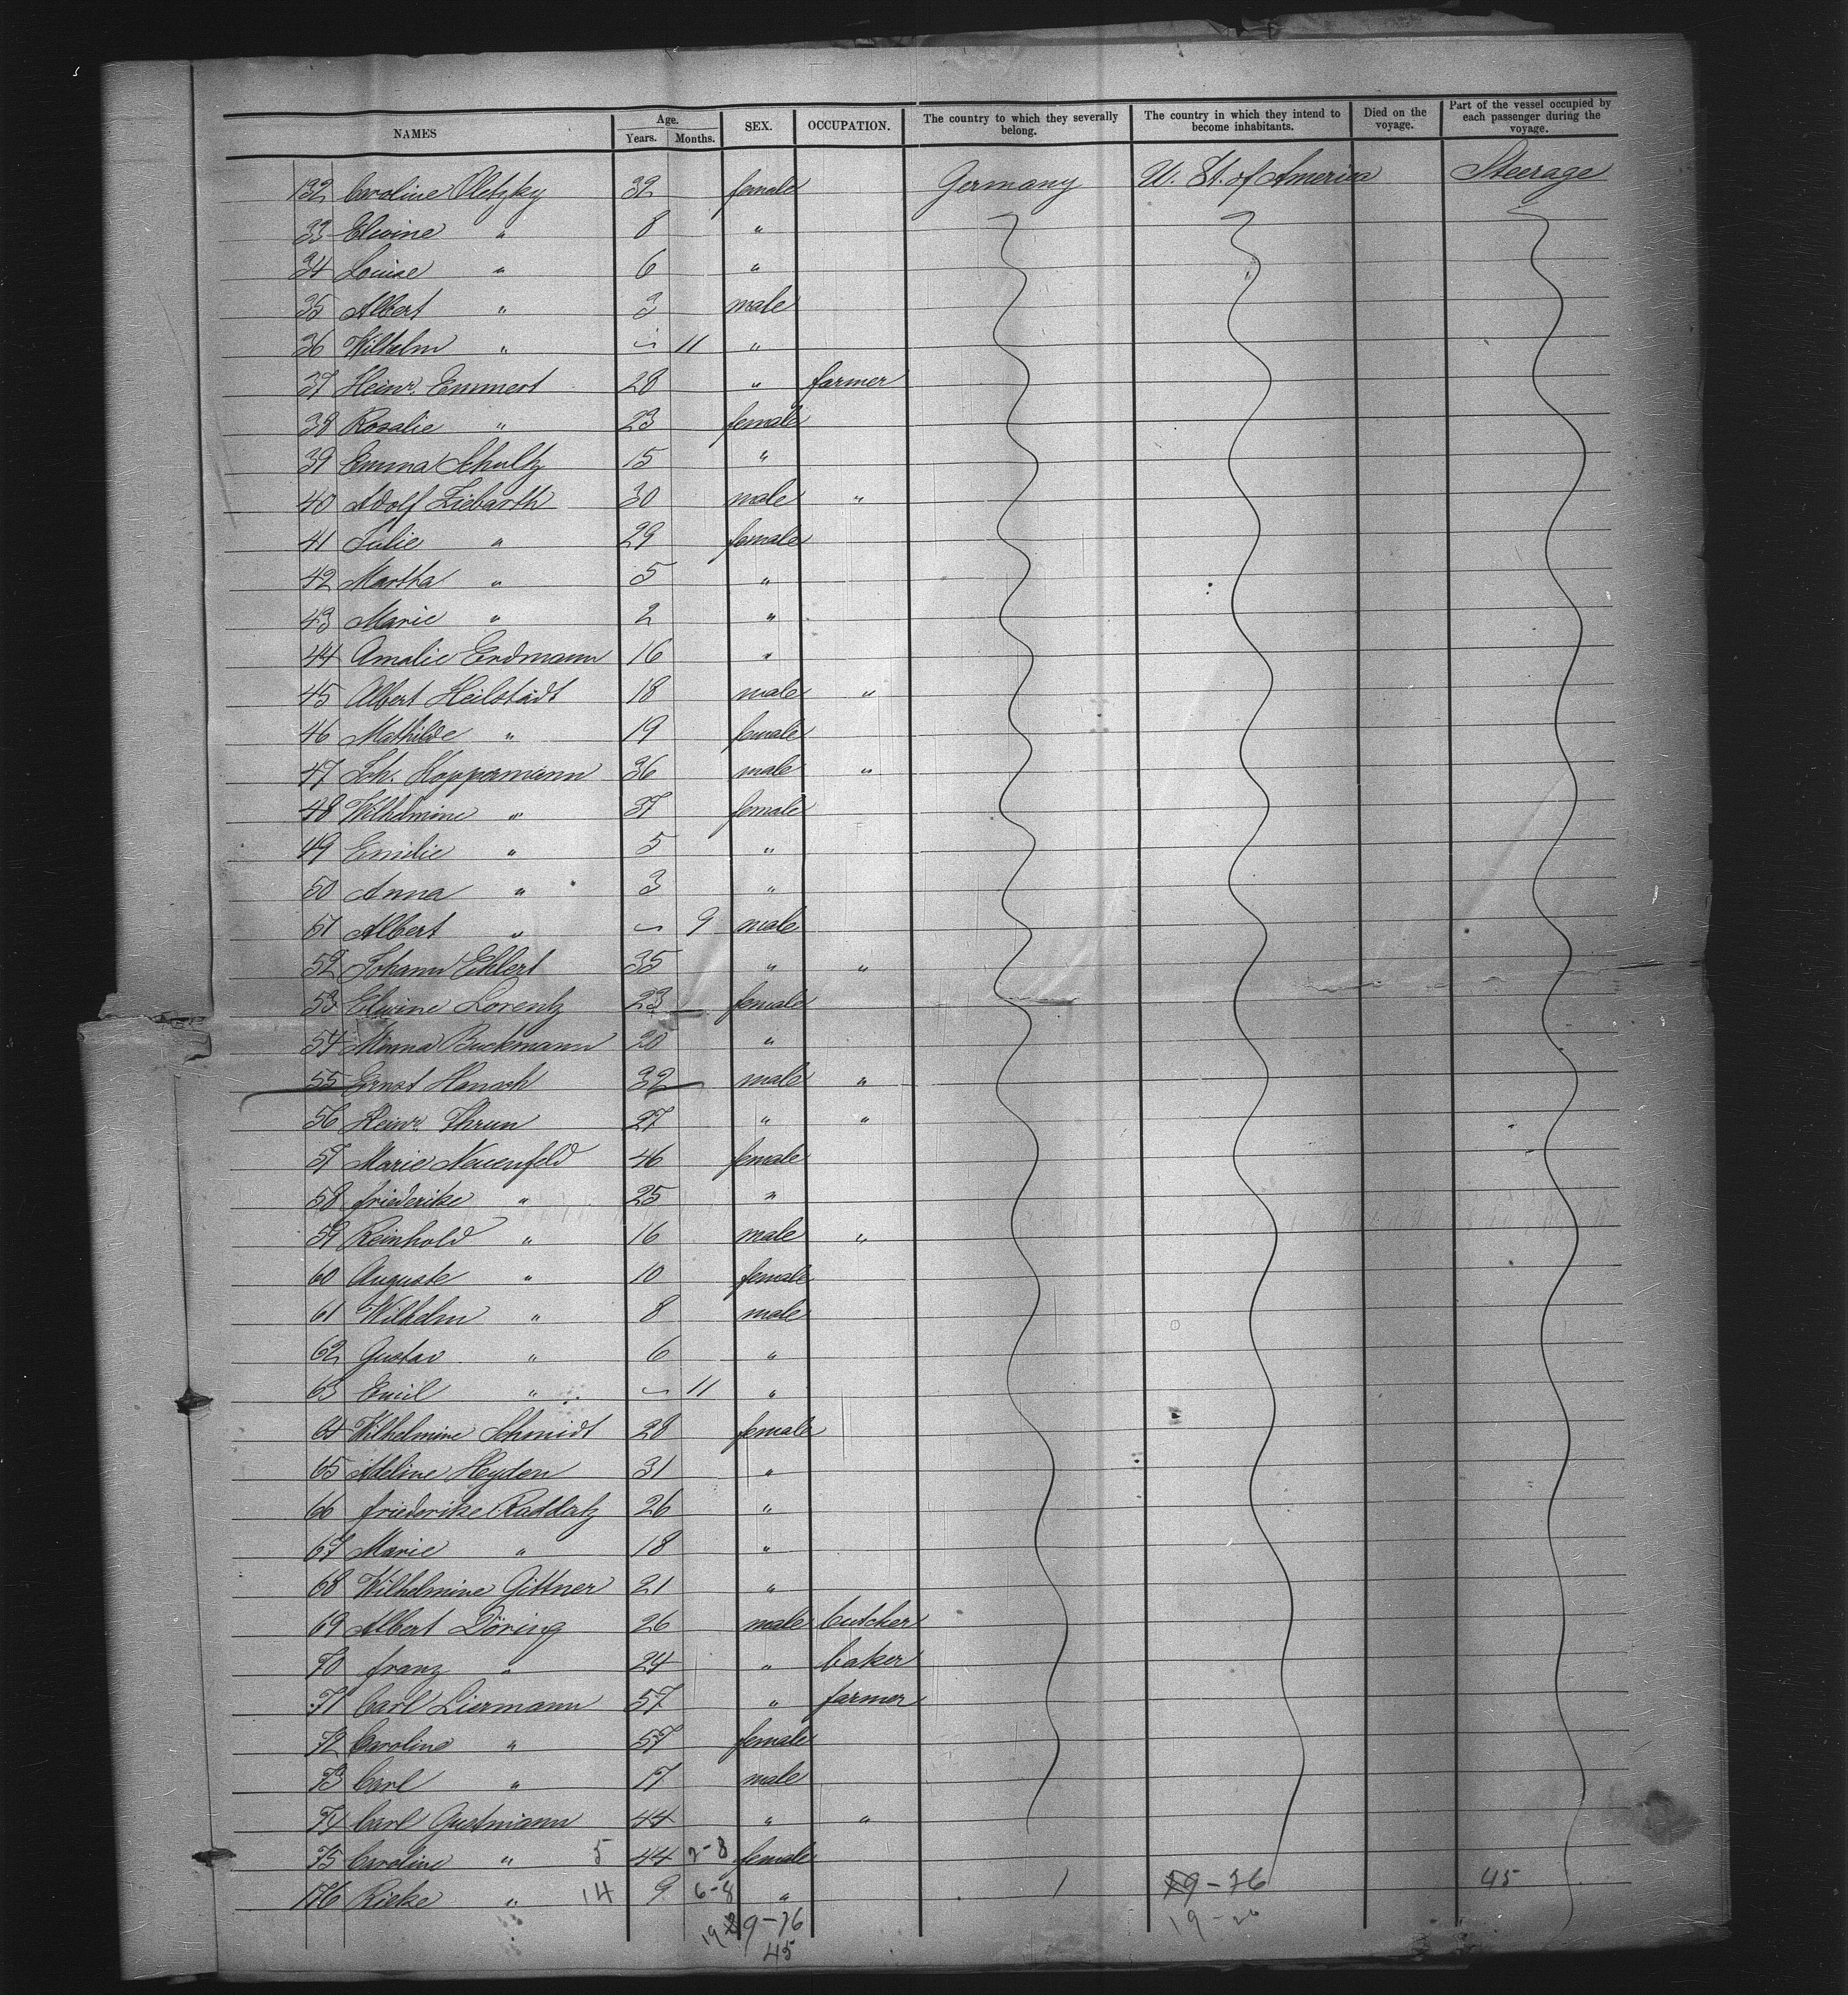 NAMES Age. Years. Months. SEX. OCCUPATION. The country to which they severally belong. The country in which they intend to become inhabitants. Died on the voyage. Part of the vessel occupied by each passenger during the voyage.
132 Caroline Oletzky 32 female Germany U. St. of America Steerage
33 Elwine " 8 "
34 Louise " 6 "
35 Albert " 3 male
36 Wilhelm " 11 "
37 Heinr. Emmert 28 " farmer
38 Rosalie " 23 female
39 Emma Schultz 15 "
40 Adolf Ziebarth 30 male "
41 Julie " 29 female
42 Martha " 5 "
43 Marie " 2 "
44 Amalie Erdmann 16 "
45 Albert Heilstädt 18 male "
46 Mathilde " 19 female
47 Joh. Koppermann 36 male "
48 Wilhelmine " 37 female
49 Emilie " 5 "
50 Anna " 3 "
51 Albert " 9 male
52 Johann Ehlert 35 " "
53 Elwine Lorentz 23 female
54 Minna Buckmann 20 "
55 Ernst Hansch 32 male "
56 Heinr. Thrun 27 " "
57 Marie Neuenfeld 46 female
58 Friederike " 25 "
59 Reinhold " 16 male "
60 Auguste " 10 female
61 Wilhelm " 8 male
62 Gustav " 6 "
63 Emil " 11 "
64 Wilhelmine Schmidt 28 female
65 Adeline Heyden 31 "
66 Friederike Raddatz 26 "
67 Marie " 18 "
68 Wilhelmine Gittner 21 "
69 Albert Döring 26 male butcher
70 Franz " 24 " baker
71 Carl Liermann 57 " farmer
72 Caroline " 57 female
73 Carl " 17 male
74 Carl Gustmann 44 " "
75 Caroline " 5 44 2-8 female
176 Rieke " 14 9 6-8 " 1 9-76 45
19 9-76 19-
45